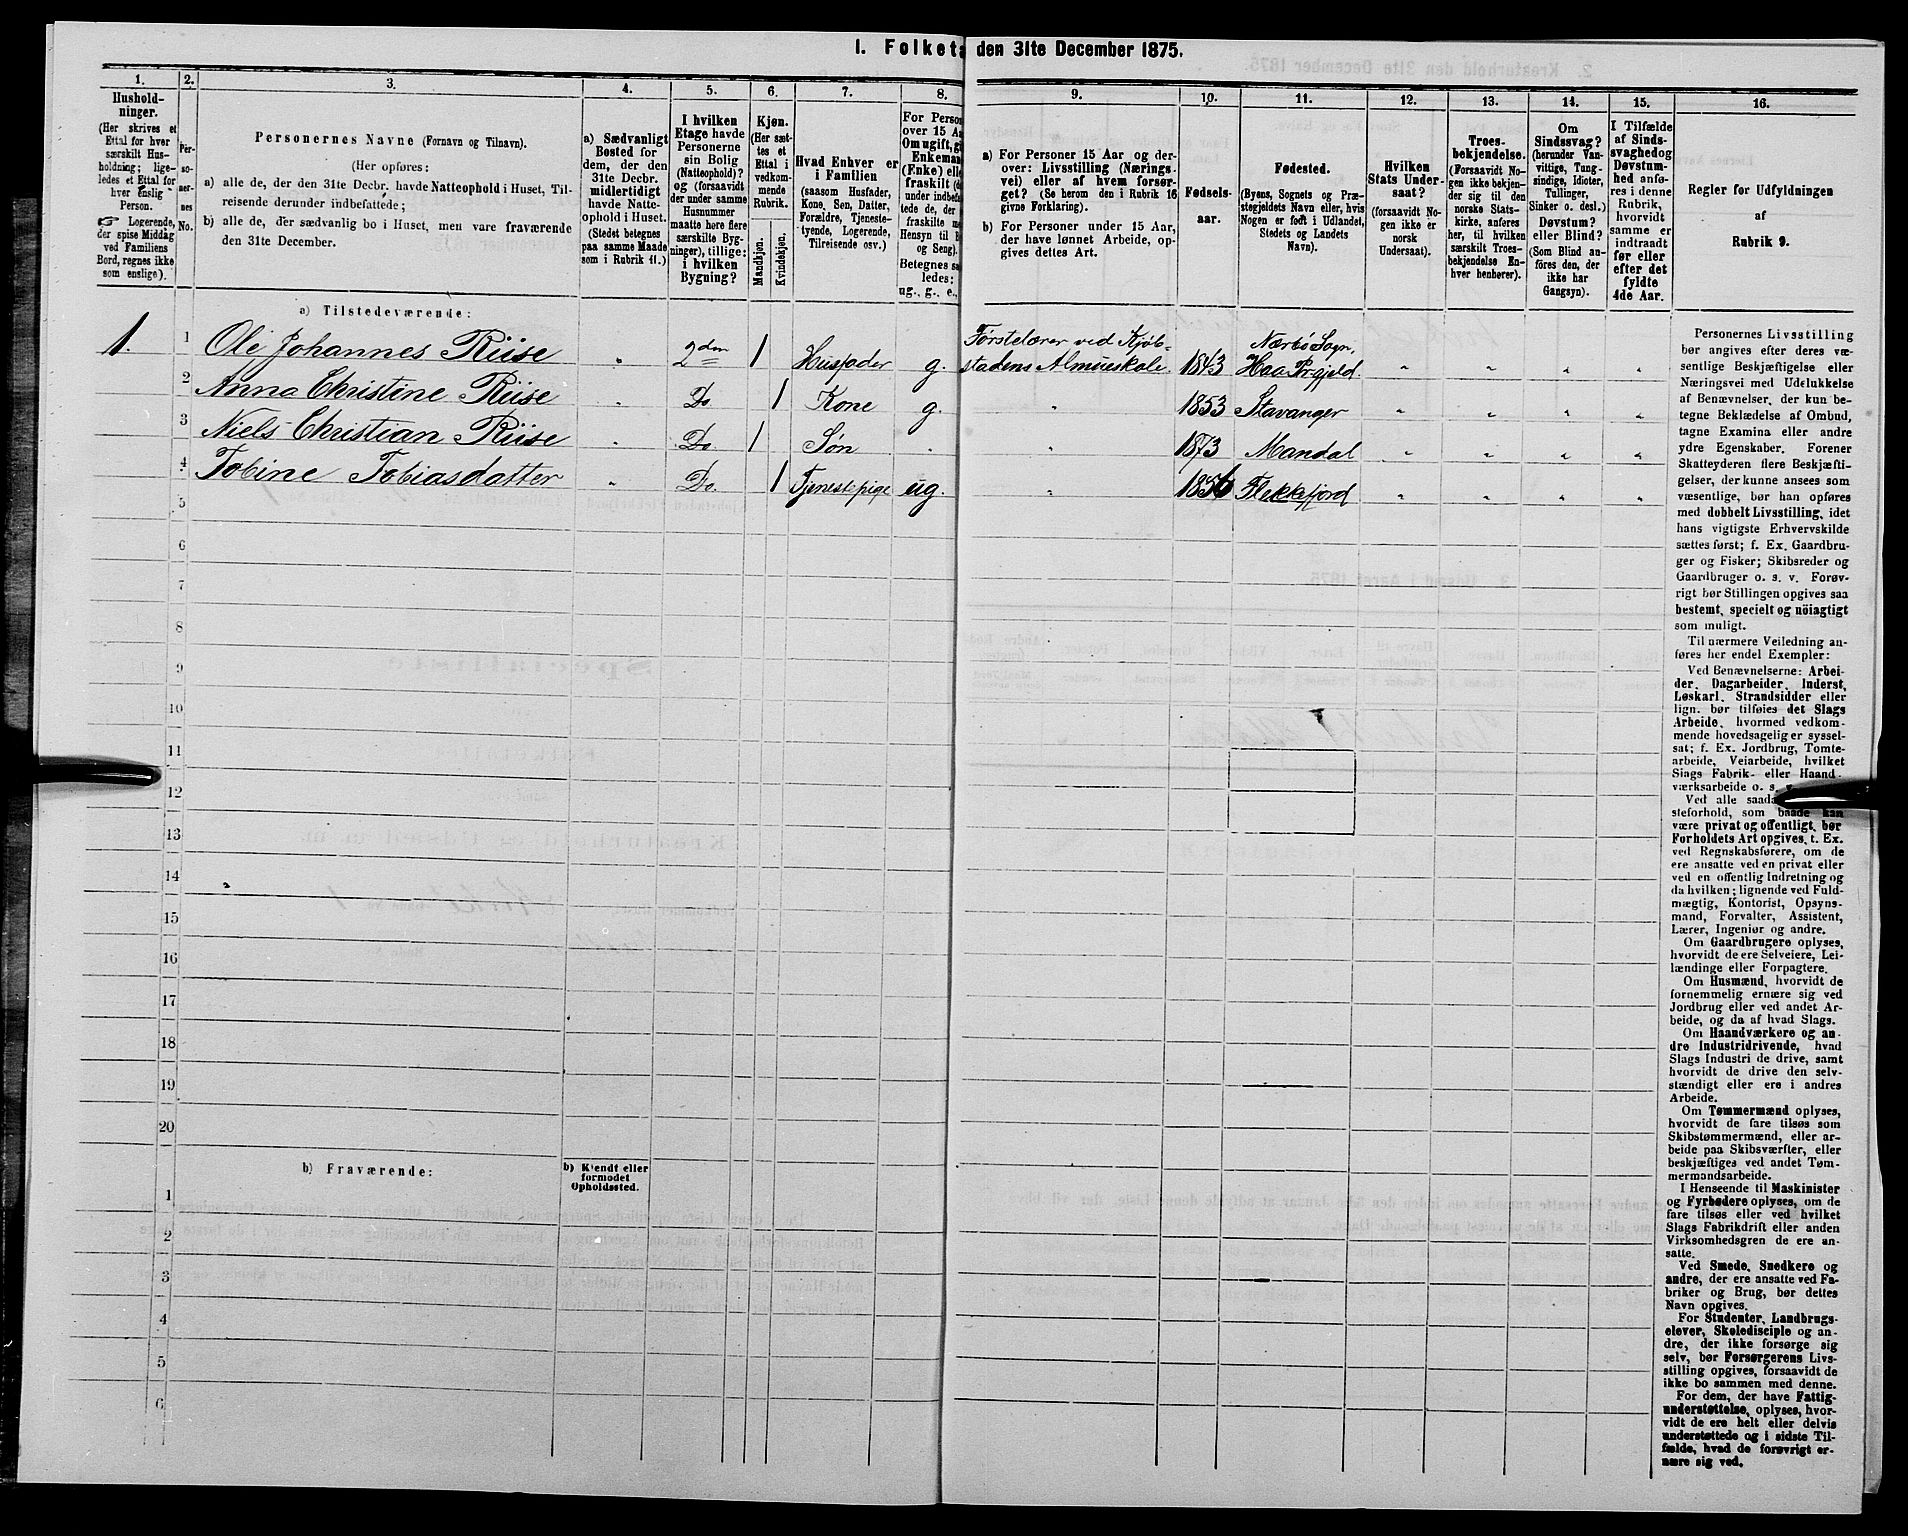 I. Folketa den 31te December 1875.
1. 2. 3. 4. 5. 6. 7. 8. 9. 10. 11. 12. 13. 14. 15. 16.
Hushold-
ninger.
(Her skrives et
Ettal for hver
særskilt Hus-
holdning; lige-
ledes et Ettal for
hver enslig
Person.
☞ Logerende,
der spise Middag
ved Familiens
Bord, regnes ikke
som enslige).
Per-
so-
ner-
nes
No.
Personernes Navne (Fornavn og Tilnavn).
(Her opføres:
a) alle de, der den 31te Decbr. havde Natteophold i Huset, Til-
reisende derunder indbefattede;
b) alle de, der sædvanlig bo i Huset, men vare fraværende
den 31te December.
a) Sædvanligt
Bosted for
dem, der den
31te Decbr.
midlertidigt
havde Natte-
ophold i Huset.
(Stedet betegnes
paa samme Maade
som i Rubrik 11.)
I hvilken
Etage havde
Personerne
sin Bolig
(Natteophold)?
og (forsaavidt
der under samme
Husnummer
maatte høre flere
særskilte Byg-
ninger), tillige:
i hvilken
Bygning?
Kjøn.
(Her sæt-
tes et
Ettal i
vedkom-
mende
Rubrik.
Mandkjøn.
Kvindekjøn.
Hvad Enhver er
i Familien
(saasom Husfader,
Kone, Søn, Datter,
Forældre, Tjeneste-
tyende, Logerende,
Tilreisende osv.)
For Person
over 15 Aa
Om ugift, gi
Enkemand
(Enke) elle
fraskilt (d
under indbef
tede de, der
fraskilte m
Hensyn til B
og Seng).
Betegnes sa
ledes:
ug., g., e.,
a) For Personer 15 Aar og der-
over: Livsstilling (Nærings-
vei) eller af hvem forsør-
get? (Se herom den i Rubrik 16
givne Forklaring).
b) For Personer under 15 Aar,
der have lønnet Arbeide, op-
gives dettes Art.
Fødsels-
aar.
Fødested.
(Byens, Sognets og Præ-
stegjeldets Navn eller, hvis
Nogen er født i Udlandet,
Stedets og Landets
Navn).
Hvilken
Stats Under-
saat?
(forsaavidt No-
gen ikke er
norsk
Undersaat).
Troes-
bekjendelse.
(Forsaavidt No-
gen ikke bekjen-
der sig til den
norske Stats-
kirke, anføres
her, til hvilken
særskilt Troes-
bekjendelse En-
hver henhører).
Om
Sindssvag?
(herunder Van-
vittige, Tung-
sindige, Idioter,
Tullinger,
Sinker o. desl.)
Døvstum?
eller Blind?
(Som Blind an-
føres den, der
ikke har
Gangsyn).
I Tilfælde
af Sinds-
svaghed og
Døvstum-
hed anfø-
res i denne
Rubrik,
hvorvidt
samme er
indtraadt
før eller
efter det
fyldte
4de Aar.
Regler for Udfyldningen
af
Rubrik 9.
a) Tilstedeværende:
1. 1 Ole Johannes Riise " 2den 1 Husfader g. Førstelærer ved Kjøb-stadens Almueskole. 1843 Nærbø Sogn, Haa Prgjeld. " " " "
2 Anna Christine Riise " Do 1 Kone g. " 1853 Stavanger " " " "
3 Niels Christian Riise " Do 1 Søn . " 1873 Mandal " " " "
4 Tobine Tobiasdatter " Do. 1 Tjenestepige ug. " 1856 Flekkefjord " " " "
5
6
7
8
9
10
11
12
13
14
15
16
17
18
19
20
b) Fraværende:
b) Kjendt eller
formodet
Opholdssted.
1
2
3
4
5
6
Personernes Livsstilling
bør angives efter deres væ-
sentlige Beskjæftigelse eller
Næringsvei med Udelukkelse
af Benævnelser, der kun be-
tegne Beklædelse af Ombud,
tagne Examina eller andre
ydre Egenskaber. Forener
Skatteyderen flere Beskjæfti-
gelser, der kunne ansees som
væsentlige, bør han opføres
med dobbelt Livsstilling, idet
hans vigtigste Erhvervskilde
sættes først; f. Ex. Gaardbru-
ger og Fisker; Skibsreder og
Gaardbruger o. s. v. Forøv-
rigt bør Stillingen opgives saa
bestemt, specielt og nöiagtigt
som muligt.
Til nærmere Veiledning an-
føres her endel Exempler:
Ved Benævnelserne: Arbei-
der, Dagarbeider, Inderst,
Løskarl, Strandsidder eller
lign. bør tilføies det Slags
Arbeide, hvormed vedkom-
mende hovedsagelig er syssel-
sat; f. Ex. Jordbrug, Tomte-
arbeide, Veiarbeide, hvilket
Slags Fabrik- eller Haand-
værksarbeide o. s.
Ved alle saada
steforhold, som baade kan
være privat og offentligt, bør
Forholdets Art opgives, t. Ex.
ved Regnskabsførere, om de
ere ansatte ved en privat eller
ved en offentlig Indretning og
da hvilken; lignende ved Fuld-
mægtig, Kontorist, Opsyns-
mand, Forvalter, Assistent,
Lærer, Ingeniør og andre.
Om Gaardbrugere oplyses,
hvorvidt de ere Selveiere, Lei-
lændinge eller Forpagtere.
Om Husmænd, hvorvidt de
fornemmelig ernære sig ved
Jordbrug eller ved andet Ar-
beide, og da af hvad Slags.
Om Haandværkere og an-
dre Industridrivende, hvad
Slags Industri de drive, samt
hvorvidt de drive den selv-
stændigt eller ere i andres
Arbeide.
Om Tømmermænd oplyses,
hvorvidt de fare tilsøs som
Skibstømmermænd, eller ar-
beide paa Skibsværfter, eller
beskjæftiges ved andet Tøm-
mermandsarbeide.
I Henseende til Maskinister
og Fyrbødere oplyses, om de
fare tilsøs eller ved hvilket
Slags Fabrikdrift eller anden
Virksomhedsgren de ere an-
satte.
Ved Smede, Snedkere og
andre, der ere ansatte ved Fa-
briker og Brug, bør dettes
Navn opgives.
For Studenter, Landbrugs-
elever, Skoledisciple og an-
dre, der ikke forsørge sig
selv, bør Forsørgerens Livs-
stilling opgives, forsaavidt de
ikke bo sammen med denne.
For dem, der have Fattig-
understøttelse, oplyses, hvor-
vidt de ere helt eller delvis
understøttede og i sidste Til-
fælde, hvad de forøvrigt er-
nære sig ved.